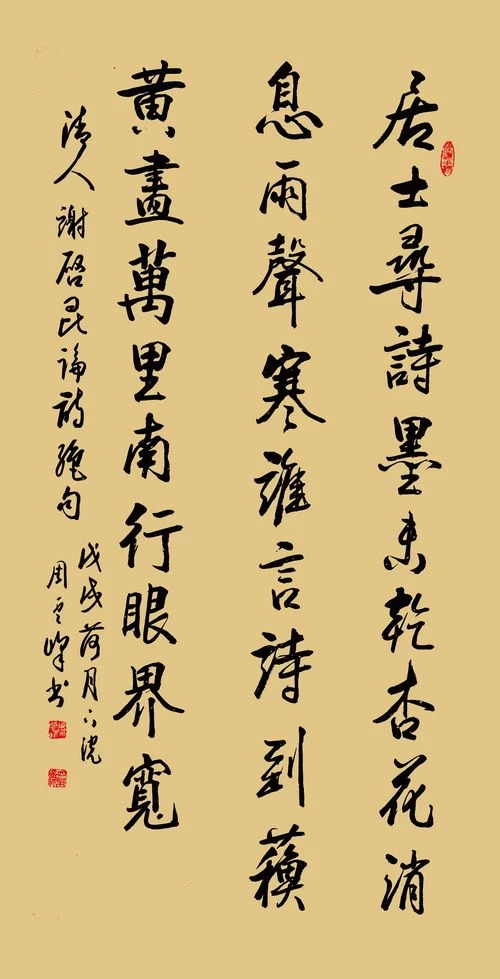 居士尋詩墨未乾杏花消
息雨聲寒誰言詩到蘓
黃畫萬里南行眼界寬
清人謝启昆論詩絕句
戊戌荷月下浣
周雲峰书